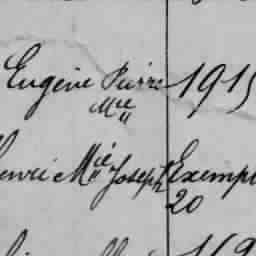 Eugène Pierre 1915
Mie
Henri Mie Joseph Exempt
20